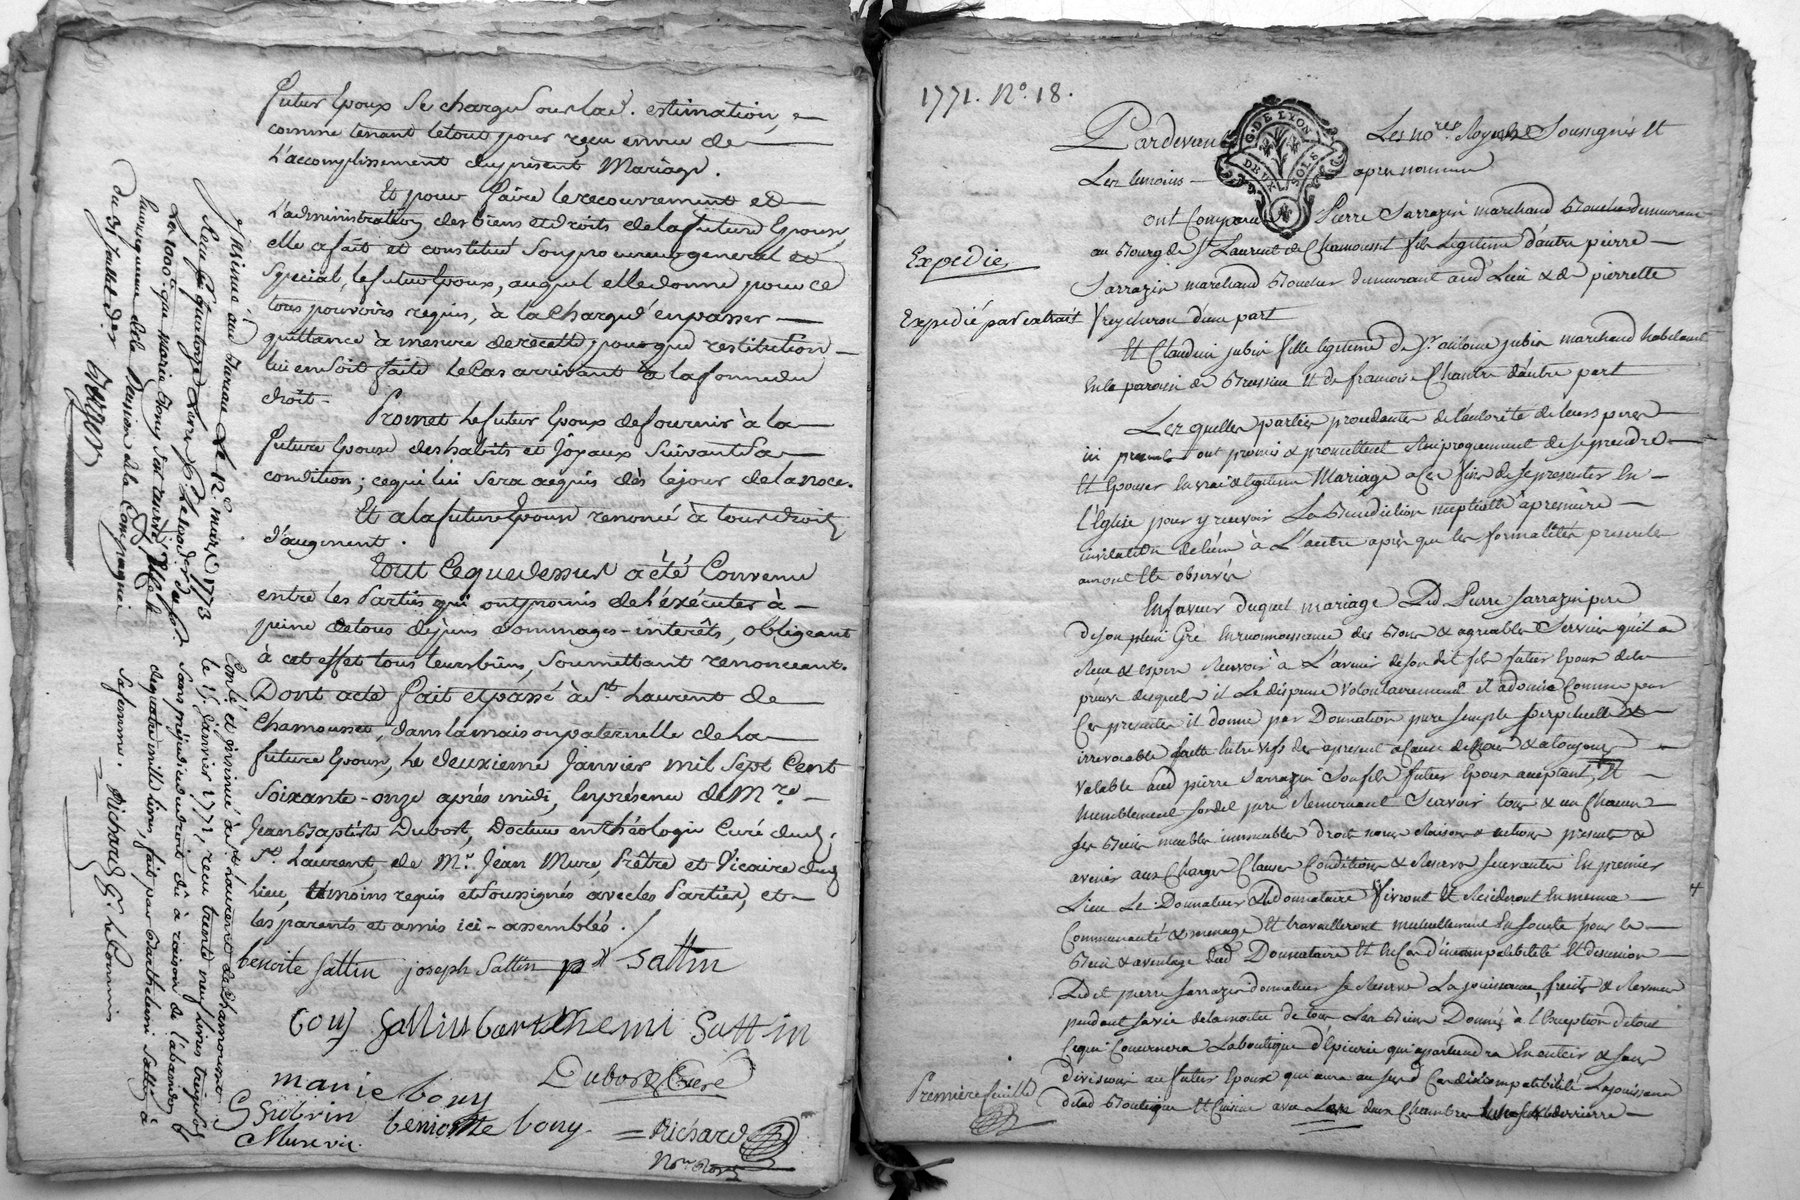 futur Epoux se charge sur lad. estimation, &
comme tenant le tout pour reçu en vue de
L'accomplissement du present Mariage.
Et pour faire le recouvrement et
L'administration des biens et droits de la future Epouse,
elle a fait et constitué son procureur general et
Special, le futur Epoux, auquel elle donne pour ce
tous pouvoirs requis, à la charge d'en passer
quittance à mesure de recette, pour que restitution
lui en soit faite le cas arrivant à la forme du
droit.
Promet le futur Epoux de fournir à la
future Epouse des habits et Joyaux suivant sa
condition; ce qui lui sera acquis dès le jour de la noce.
Et a la future Epouse renoncé à tous droits
d'augment.
Tout ce que dessus a été Convenu
entre les Parties qui ont promis de l'éxécuter à
peine de tous dépens dommages-interêts, obligeant
à cet effet tous leurs biens, soumettant renonceant.
Dont acte fait et passé à St. Laurent de
Chamousset, dans la maison paternelle de la
future Epouse, le deuxieme Janvier mil sept Cent
soixante-onze après midi, en présence de Mre.
Jean Baptiste Dubost, Docteur en théologie Curé dud.
St. Laurent, de Mr. Jean Mure, Prêtre et Vicaire dud.
lieu, témoins requis et soussignés avec les Parties, et
les parents et amis ici-assemblés.
benoite sattin joseph Sattin pr Sattin
bouy Sattin barthelemi Sattin
marie bouy Dubost Curé
Subrin benoitte bouy
Mure vic. Richard
Nore. Royal
Exprimé au Bureau Le 12. mars 1773
Reçu quatorze Livres
La 1000. que marie Bouy s'est reservé
du 31 Juillet de
Berger
Conlé et insinué à St. Laurent de Chamousset
le 15. Janvier 1771, reçu trente neuf livres treize sols
sans préjudice du droit dû à raison de l'abandon
de quatre mille livres, fait par Barthelemi Sattin à
sa femme. Richard Gr. le Commis
1771. No. 18.
G. DE LYON
DEUX SOLS
Pardevant Les nores. Royaux Soussignés Et
Les temoins apres nommés
ont Comparu Pierre Sarrazin marchand Boucher demeurant
au Bourg de St. Laurent de Chamousset fils Legitime d'autre pierre
Sarrazin marchand Boucher demeurant aud. Lieu & de pierrette
Expedié
Expedié par extrait
Freycheron d'une part
Et Claudine jubin fille legitime de Sr. antoine jubin marchand habitant
En la paroisse de Brussieu Et de francoise Chantre d'autre part
Lesquelles parties procedantes de l'autorité de leurs peres
ici presents ont promis & promettent Reciproquement de se prendre
Et Epouser En vrai & legitime Mariage a ces fins de se presenter En
l'Eglise pour y recevoir La Benediction nuptialle a premiere
invitation de l'un à L'autre après que les formalités prescrites
auront Eté observés
En faveur duquel mariage Led. Pierre Sarrazin pere
de son plein Gré En reconnoissance des Bons & agreables Services qu'il a
Recu & espere Recevoir à L'avenir de son dit fils futur Epoux de la
preuve desquels il Le dispense Volontairement il a donné Comme par
Ces presentes il donne par Donnation pure simple perpetuelle &
irrevocable faitte Entre vifs des apresent a Cause de noces & a toujours
Valable aud. pierre Sarrazin Son fils futur Epoux acceptant, Et
humblement sondit pere Remerciant Savoir tous & un Chacun
ses Biens meubles immeubles droits noms Raisons & actions presents &
avenir aux Charges Clauses Conditions & Reserves Suivantes En premier
Lieu Le Donnateur & Donnataire Vivront Et Resideront En meme
Communauté & menage Et travailleront mutuellement En societé pour le
Bien & avantage dud. Donnataire Et En Cas d'incompatibilité Et desunion
Ledit pierre Sarrazin donnateur se Reserve La jouissance, fruits & Revenus
pendant sa vie de la moitié de tous Les Biens Donnés à l'Exception de tout
Ce qui Concernera La boutique d'Epicerie qui apartiendra En entier & sans
division au futur Epoux qui aura aud. Cas d'incompatibilité La jouissance
de lad. Boutique Et Cuisine avec Les deux Chambres
Premiere feuille